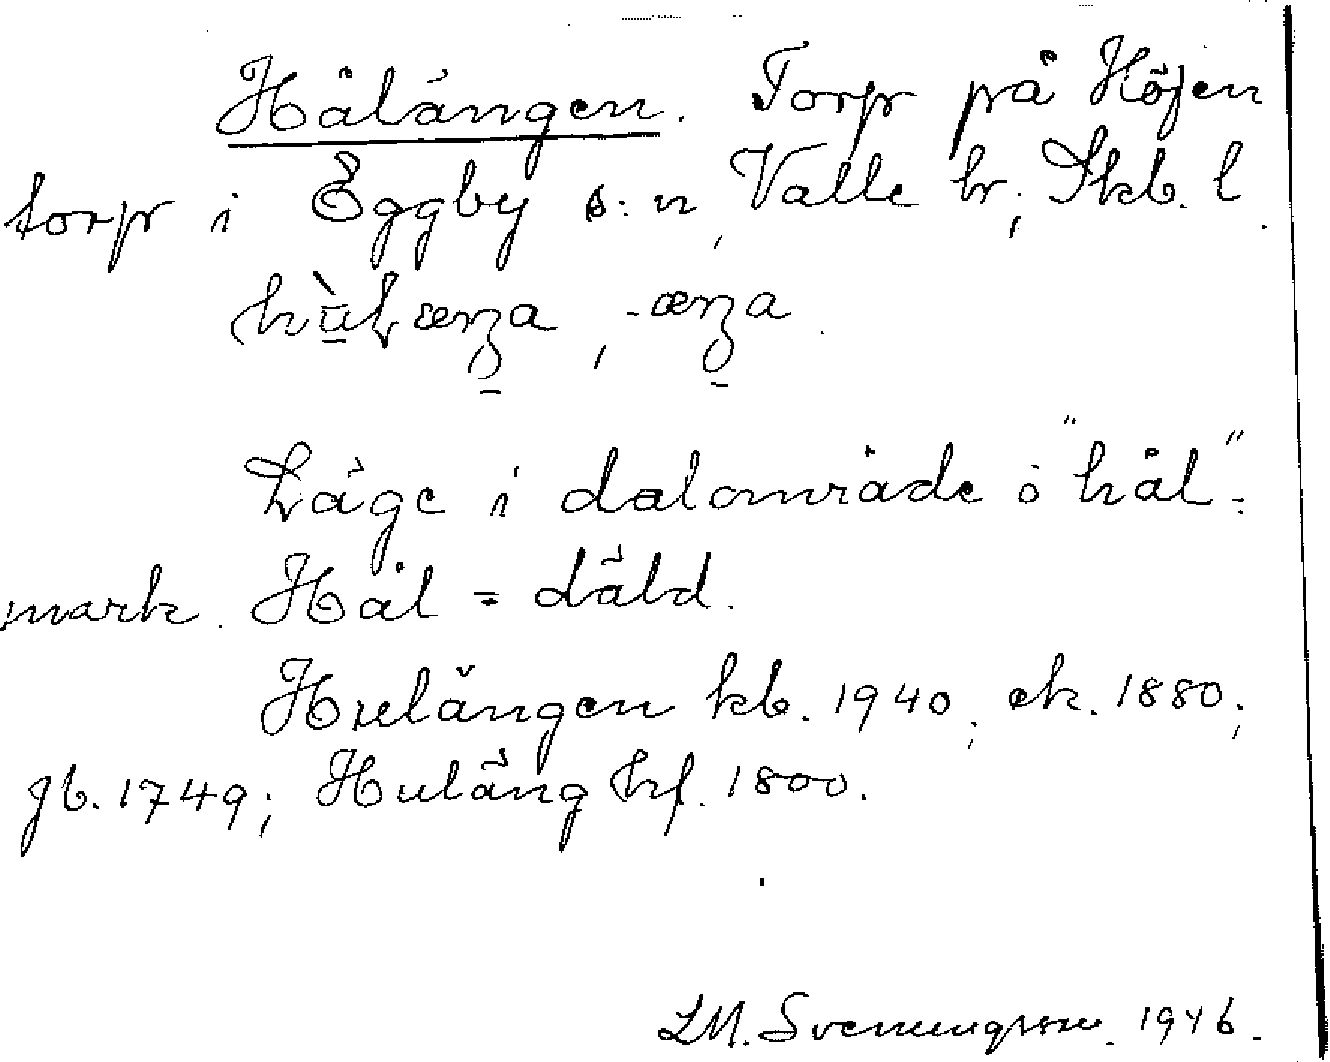 Hålängen. Torp på Höjen
torp i Eggby s:n, Valle hr; Skb. l.
Läge i dalområde o "hål"-
mark. Hål = däld.
Hulängen kb. 1940; ek. 1880;
gb. 1749; Huläng hf. 1800.
LM. Svenungsson. 1946.